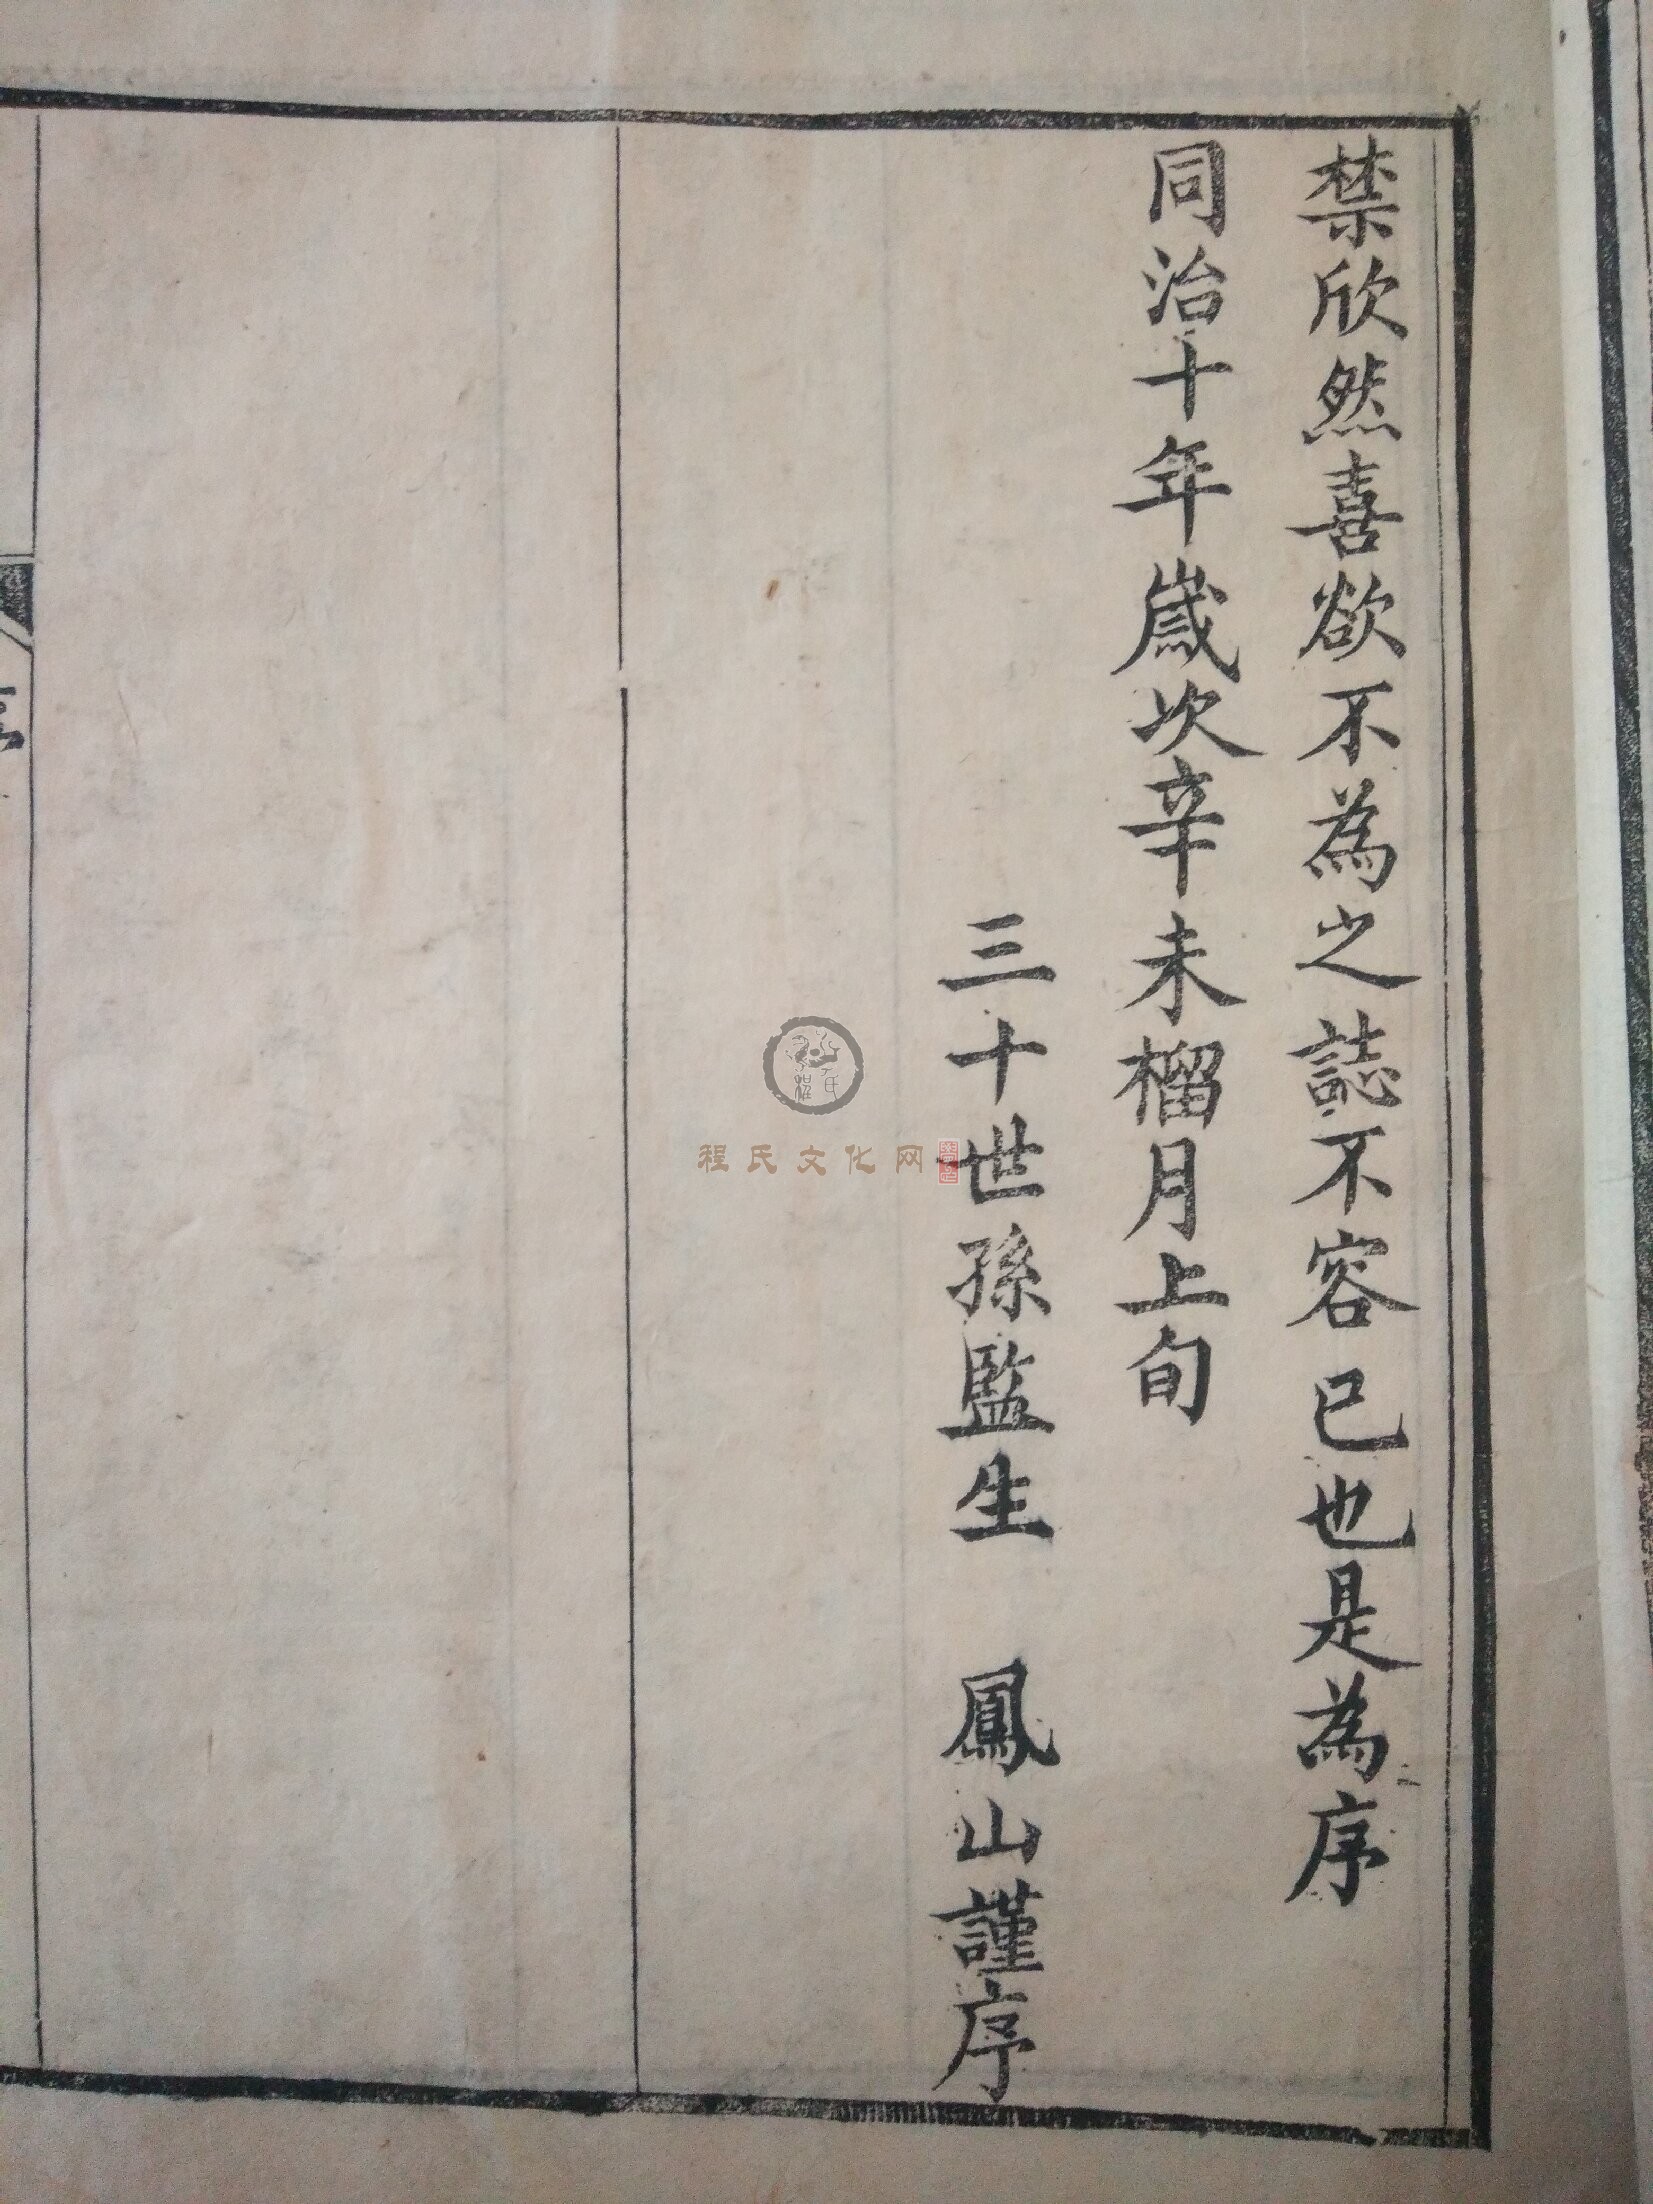 禁欣然喜欲不為之誌不容已也是為序
同治十年歲次辛未榴月上旬
三十世孫監生　鳳山謹序
程氏
程氏文化网